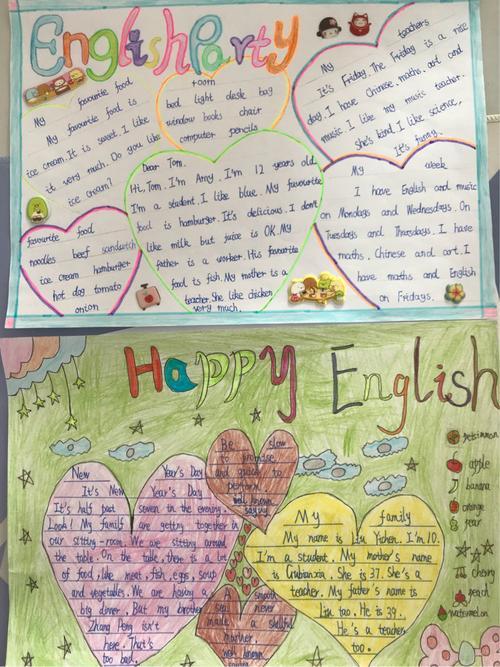 English Party
My favourite food
My favourite food is
ice cream. It is sweet. I like
it very much. Do you like
ice cream?
room
bed light desk bag
window books chair
computer pencils
My teachers
It's Friday. The Friday is a nice
day. I have Chinese, maths, art and
music. I like my music teacher.
She's kind. I like science,
It's funny.
Dear Tom.
Hi, Tom. I'm Amy. I'm 12 years old.
I'm a student. I like blue. My favourite
food is hamburger. It's delicious. I don't
like milk but juice is OK. My
father is a worker. His favourite
food is fish. My mother is a
teacher. She like chicken
very much.
favourite food
noodles beef sandwich
ice cream hamburger
hot dog tomato
onion
My week
I have English and music
on Mondays and Wednesdays. On
Tuesdays and Thursdays. I have
maths, Chinese and art. I
have maths and English
on Fridays.
Happy English
New Year's Day
It's New Year's Day
It's half past seven in the evening.
Look! My family are getting together in
our sitting-room. We are sitting around
the table. On the table, there is a lot
of food, like meat, fish, eggs, soup
and vegetables. We are having a
big dinner. But my brother
Zhang Peng isn't
here. That's
too bad.
Be slow
to promise
and quick to
perform
well known
saying
A smooth
sea never
made a skillful
mother.
well known
My family
My name is Liu Yichen. I'm 10.
I'm a student. My mother's name
is Guanxia. She is 37. She's a
teacher. My father's name is
Liu tao. He is 39.
He's a teacher
too.
persimmon
apple
banana
orange
pear
cherry
peach
watermelon